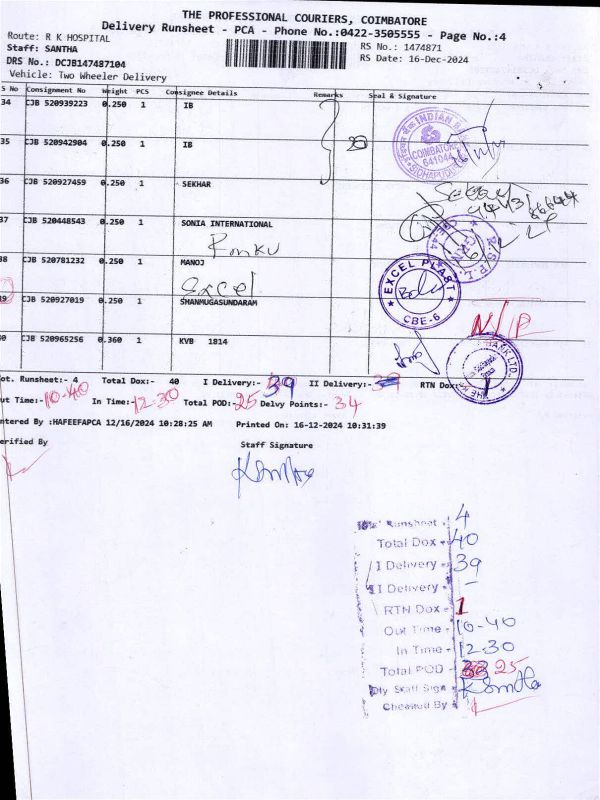 THE PROFESSIONAL COURIERS, COIMBATORE
Delivery Runsheet - PCA - Phone No.:0422-3505555 - Page No.:4
Route: R K HOSPITAL
RS No.: 1474871
Staff: SANTHA
RS Date: 16-Dec-2024
DRS No.: DCJB147487104
Vehicle: Two Wheeler Delivery
S No Consignment No Weight PCS Consignee Details Remarks Seal & Signature
34 CJB 520939223 0.250 1 IB
INDIAN
COIMBATORE
641044
35 CJB 520942904 0.250 1 IB
36 CJB 520927459 0.250 1 SEKHAR
37 CJB 520448543 0.250 1 SONIA INTERNATIONAL
Ronku
38 CJB 520781232 0.250 1 MANOJ
Excel
EXCEL PLAST
CBE-6
39 CJB 520927019 0.250 1 SMANMUGASUNDARAM
40 CJB 520965256 0.360 1 KVB 1814
BANK LTD.
Tot. Runsheet:- 4 Total Dox:- 40 I Delivery:- 39 II Delivery:- RTN Dox:-
Out Time:- 10-40 In Time:- 12-30 Total POD:- 25 Delvy Points:- 34
Entered By :HAFEEFAPCA 12/16/2024 10:28:25 AM Printed On: 16-12-2024 10:31:39
Verified By Staff Signature
Runsheet - 4
Total Dox - 40
I Delivery - 39
II Delivery - -
RTN Dox - 1
Out Time - 10-40
In Time - 12.30
Total POD - 25
Dly Staff Sign -
Checked By -